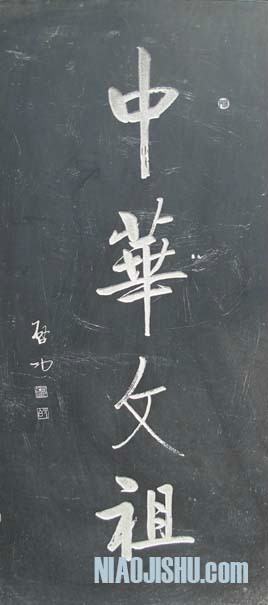 中華文祖
啓功
NIAOJISHU.com